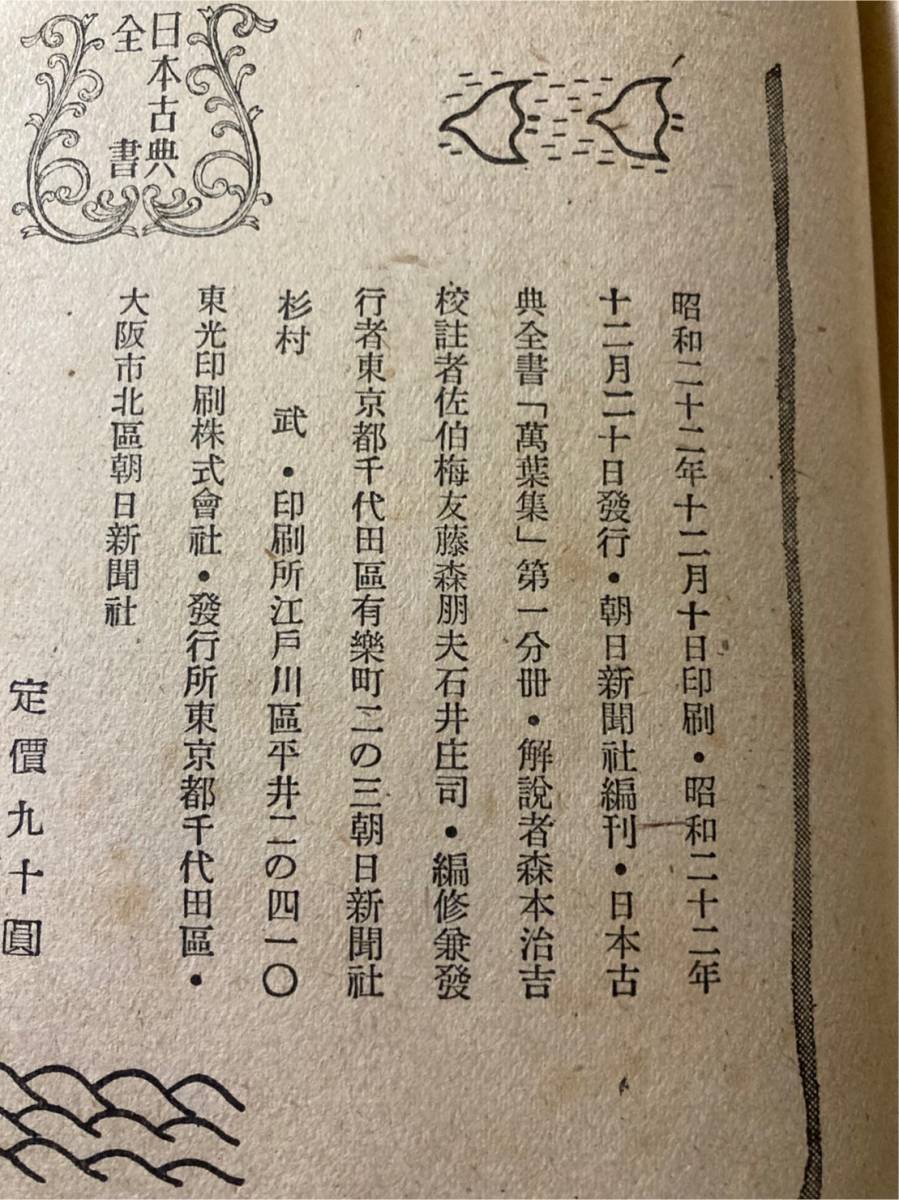 昭和二十二年十二月十日印刷・昭和二十二年
十二月二十日發行・朝日新聞社編刊・日本古
典全書「萬葉集」第一分冊・解說者森本治吉
校註者佐伯梅友藤森朋夫石井庄司・編修兼發
行者東京都千代田區有樂町二の三朝日新聞社
杉村　武・印刷所江戶川區平井二の四一〇
東光印刷株式會社・發行所東京都千代田區・
大阪市北區朝日新聞社
日本古典
全書
定價九十圓